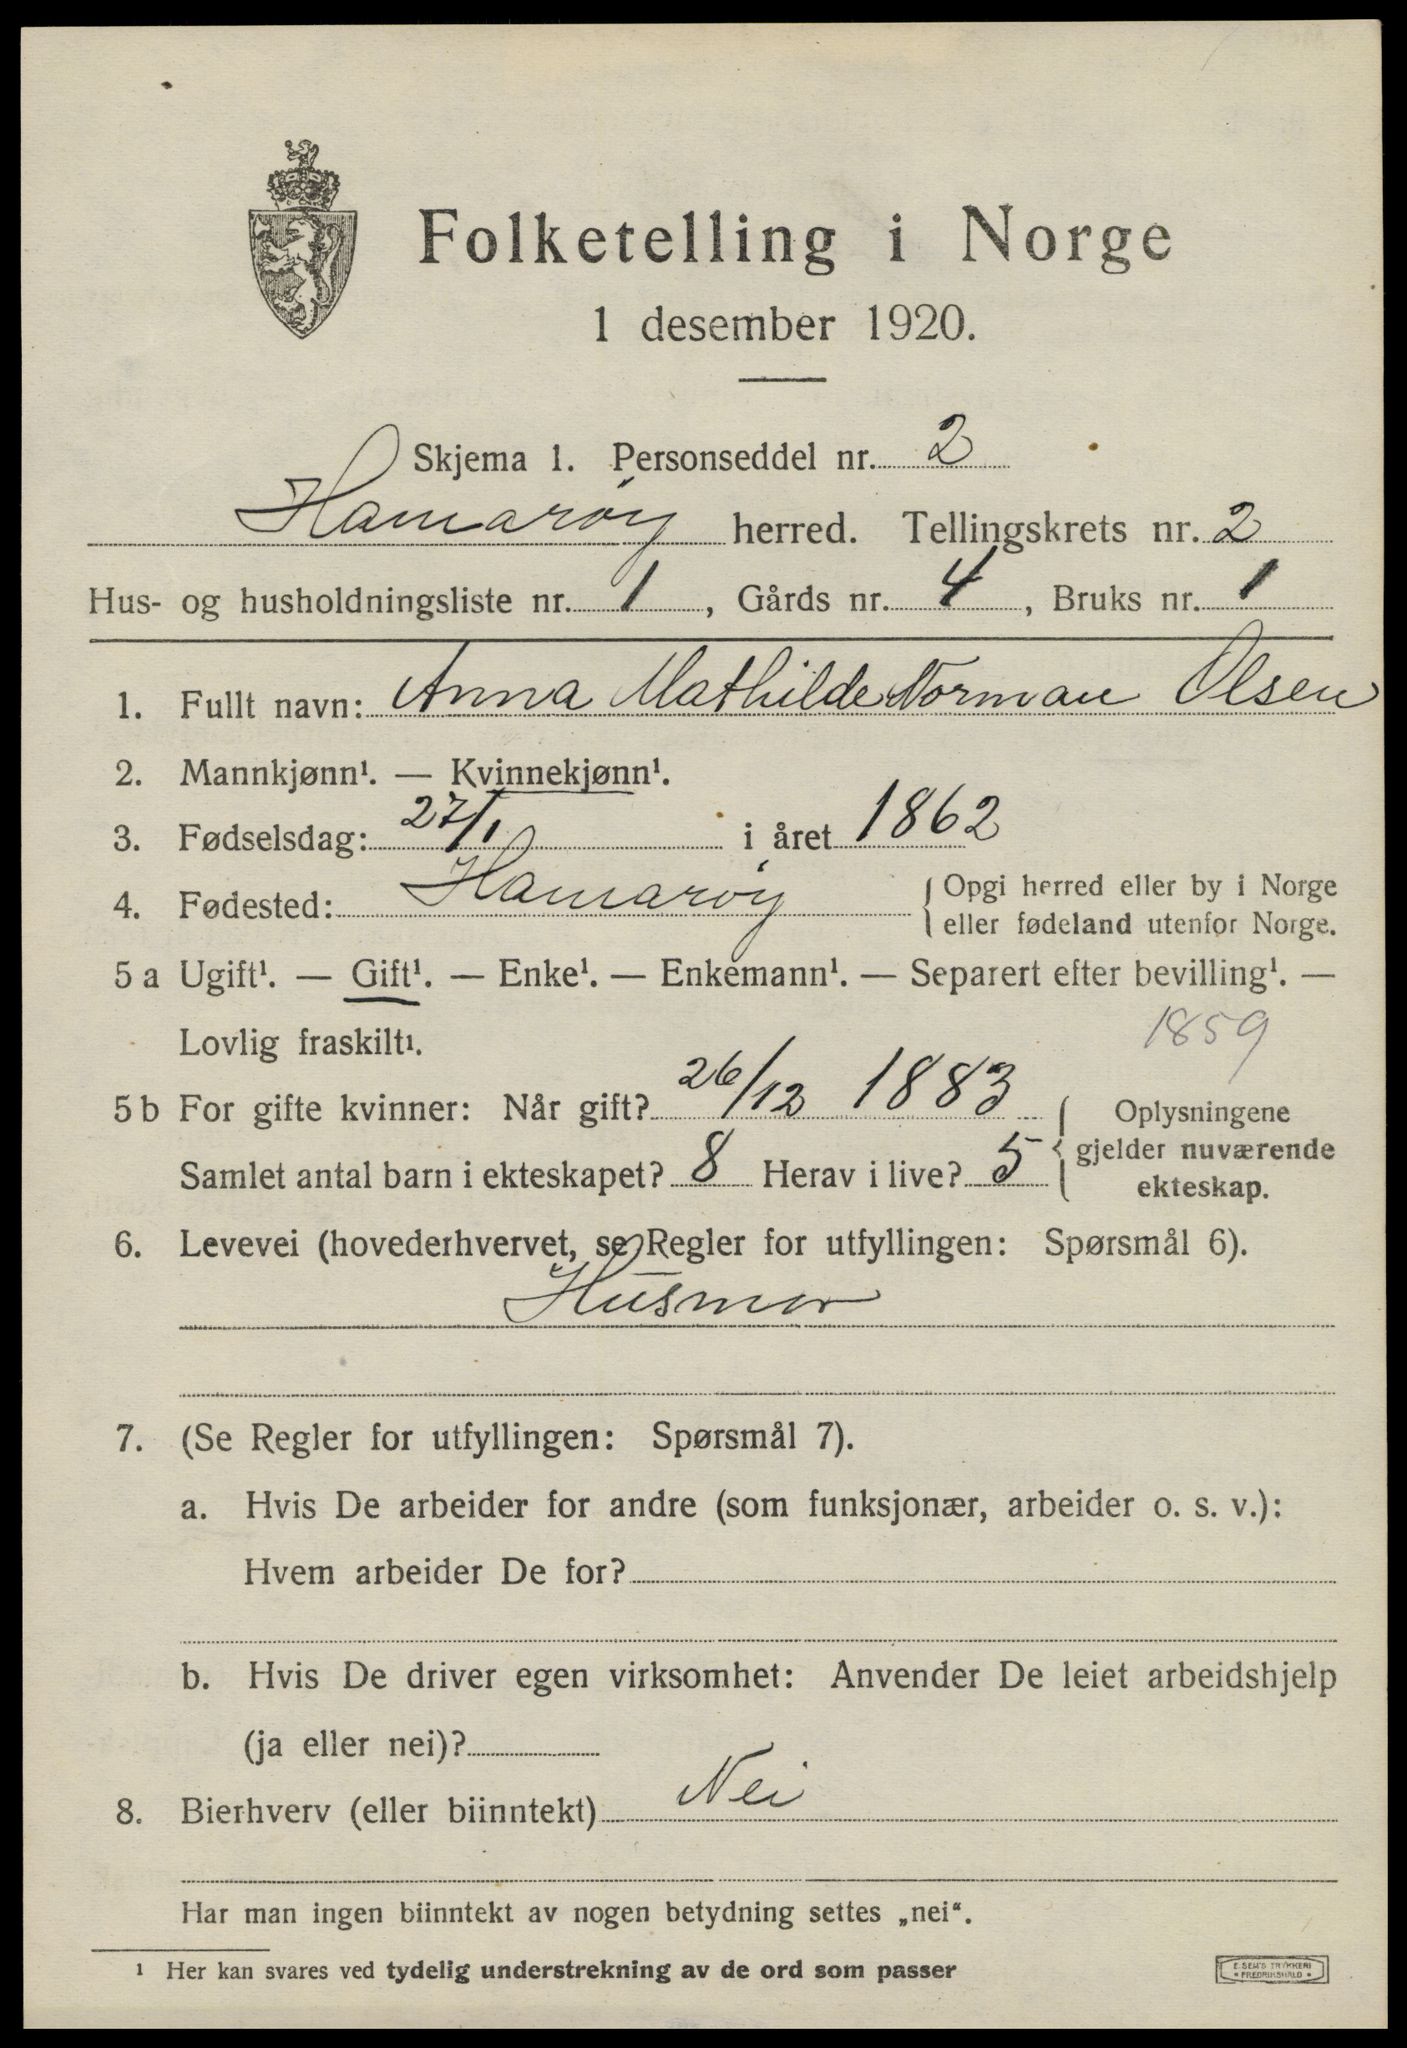 Folketelling i Norge
1 desember 1920.
Skjema 1. Personseddel nr. 2
Hamarøy herred. Tellingskrets nr. 2
Hus- og husholdningsliste nr. 1, Gårds nr. 4, Bruks nr. 1
1. Fullt navn: Anna Mathilde Norman Olsen
2. Mannkjønn¹. — Kvinnekjønn¹.
3. Fødselsdag: 27/1 i året 1862
4. Fødested: Hamarøy { Opgi herred eller by i Norge
eller fødeland utenfor Norge.
5 a Ugift¹. — Gift¹. — Enke¹. — Enkemann¹. — Separert efter bevilling¹. —
Lovlig fraskilt¹. 1859
5 b For gifte kvinner: Når gift? 26/12 1883 { Oplysningene
gjelder nuværende
Samlet antal barn i ekteskapet? 8 Herav i live? 5 ekteskap.
6. Levevei (hovederhvervet, se Regler for utfyllingen: Spørsmål 6).
Husmor
7. (Se Regler for utfyllingen: Spørsmål 7).
a. Hvis De arbeider for andre (som funksjonær, arbeider o. s. v.):
Hvem arbeider De for?
b. Hvis De driver egen virksomhet: Anvender De leiet arbeidshjelp
(ja eller nei)?
8. Bierhverv (eller biinntekt) Nei
Har man ingen biinntekt av nogen betydning settes „nei“.
¹ Her kan svares ved tydelig understrekning av de ord som passer
E. SEM'S TRYKKERI
• FREDRIKSHALD •